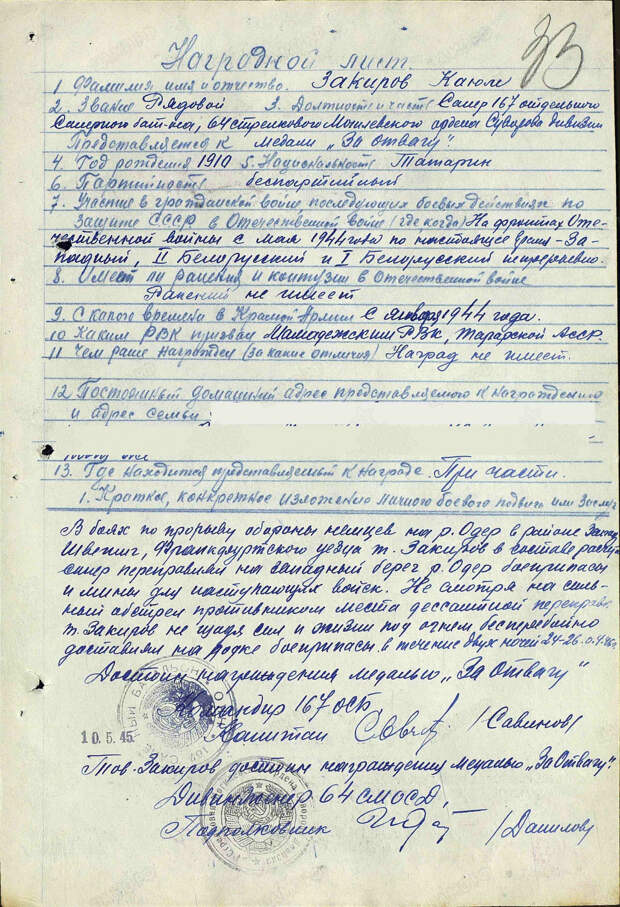 33
Наградной лист.
1 Фамилия имя и отчество. Закиров Каюм
2. Звание Рядовой 3. Должность и часть Сапер 167 отдельного
Саперного бат-на, 64 стрелкового Могилевского ордена Суворова дивизии
Представляется к медали „За отвагу“.
4. Год рождения 1910 5. Национальность Татарин
6. Партийность беспартийный
7. Участие в гражданской войне последующих боевых действиях по
защите СССР в Отечественной войне (где когда) На фронтах Оте-
чественной войны с мая 1944 года по настоящее время – За-
падный, II Белорусский и I Белорусский непрерывно.
8. Имеет ли ранения и контузии в Отечественной войне
Ранений не имеет
9. С какого времени в Красной Армии С января 1944 года.
10 Каким РВК призван Мамадежским РВК, Татарской АССР.
11 Чем ранее награжден (за какие отличия) Наград не имеет.
12. Постоянный домашний адрес представляемого к награждению
и адрес семьи:
13. Где находится представляемый к награде. При части.
1. Краткое, конкретное изложение личного боевого подвига или заслуг
В боях по прорыву обороны немцев на р. Одер в районе
Франкфуртского уезда т. Закиров в составе
переправлял на западный берег р. Одер боеприпасы
и мины для наступающих войск. Не смотря на силь-
ный обстрел противником места дессантной переправы
т. Закиров не щадя сил и жизни под огнем бесперебойно
доставлял на лодке боеприпасы в течение двух ночей 24-26.04.45г.
Достоин награждения медалью „За Отвагу“
Командир 167 ОСБ
Капитан /Савинов/
10.5.45
Тов. Закиров достоин награждения медалью „За Отвагу“.
Дивинженер 64 СМОСД,
Подполковник /Данилов/